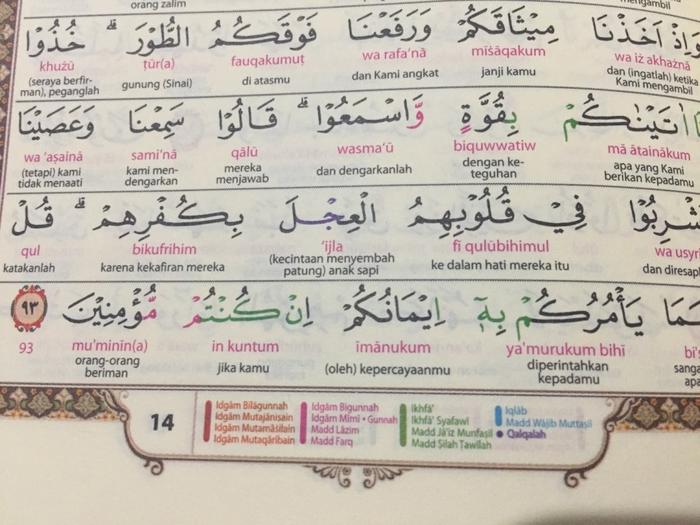 orang zalim
mengambil
وَاِذْ اَخَذْنَا مِيْثَاقَكُمْ وَرَفَعْنَا فَوْقَكُمُ الطُّوْرَ ۗ خُذُوْا
khużū ṭūr(a) fauqakumuṭ wa rafa‘nā mīṡāqakum wa iż akhażnā
(seraya berfirman), peganglah gunung (Sinai) di atasmu dan Kami angkat janji kamu dan (ingatlah) ketika Kami mengambil
مَآ اٰتَيْنٰكُمْ بِقُوَّةٍ وَّاسْمَعُوْا ۗ قَالُوْا سَمِعْنَا وَعَصَيْنَا
wa ‘aṣainā sami‘nā qālū wasma‘ū biquwwatiw mā ātainākum
(tetapi) kami tidak menaati kami mendengarkan mereka menjawab dan dengarkanlah dengan keteguhan apa yang Kami berikan kepadamu
فِيْ قُلُوْبِهِمُ الْعِجْلَ بِكُفْرِهِمْ ۗ قُلْ
qul bikufrihim ‘ijla fī qulūbihimul wa usyri
katakanlah karena kekafiran mereka (kecintaan menyembah patung) anak sapi ke dalam hati mereka itu dan diresap
يَأْمُرُكُمْ بِهٖٓ اِيْمَانُكُمْ اِنْ كُنْتُمْ مُّؤْمِنِيْنَ ٩٣
93 mu'minīn(a) in kuntum īmānukum ya'murukum bihī
orang-orang beriman jika kamu (oleh) kepercayaanmu diperintahkan kepadamu
14
Idgām Bilāgunnah
Idgām Mutajānisain
Idgām Mutamāṡilain
Idgām Mutaqāribain
Idgām Bigunnah
Idgām Mīmī • Gunnah
Madd Lāzim
Madd Farq
Ikhfā'
Ikhfā' Syafawī
Madd Jā'iz Munfaṣil
Madd Ṣilah Ṭawīlah
Iqlāb
Madd Wājib Muttaṣil
Qalqalah